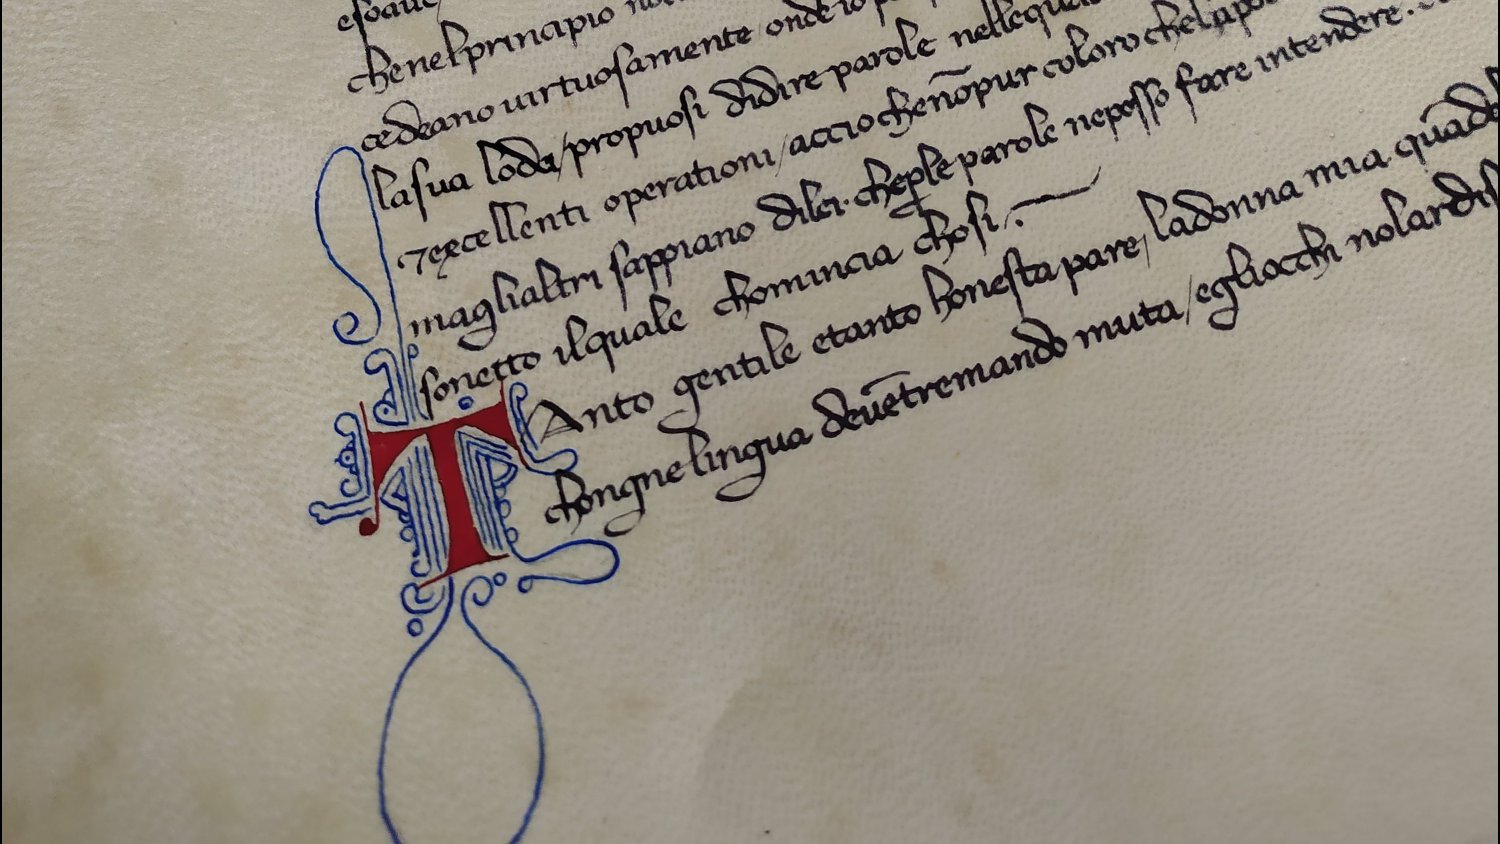 esoaue
chenelprincipio
cedeano uirtuosamente onde io
lasua lōda/propuosi didire parole nellequa
⁊excellenti operationi/accio chenōpur coloro chel
maglialtri sappiano dilei· cheꝑle parole neposso fare intendere.
sonetto ilquale chomincia chosi.
TAnto gentile etanto honesta pare/ladonna mia quādel
chongne lingua deuētremando muta/egliocchi nolardis